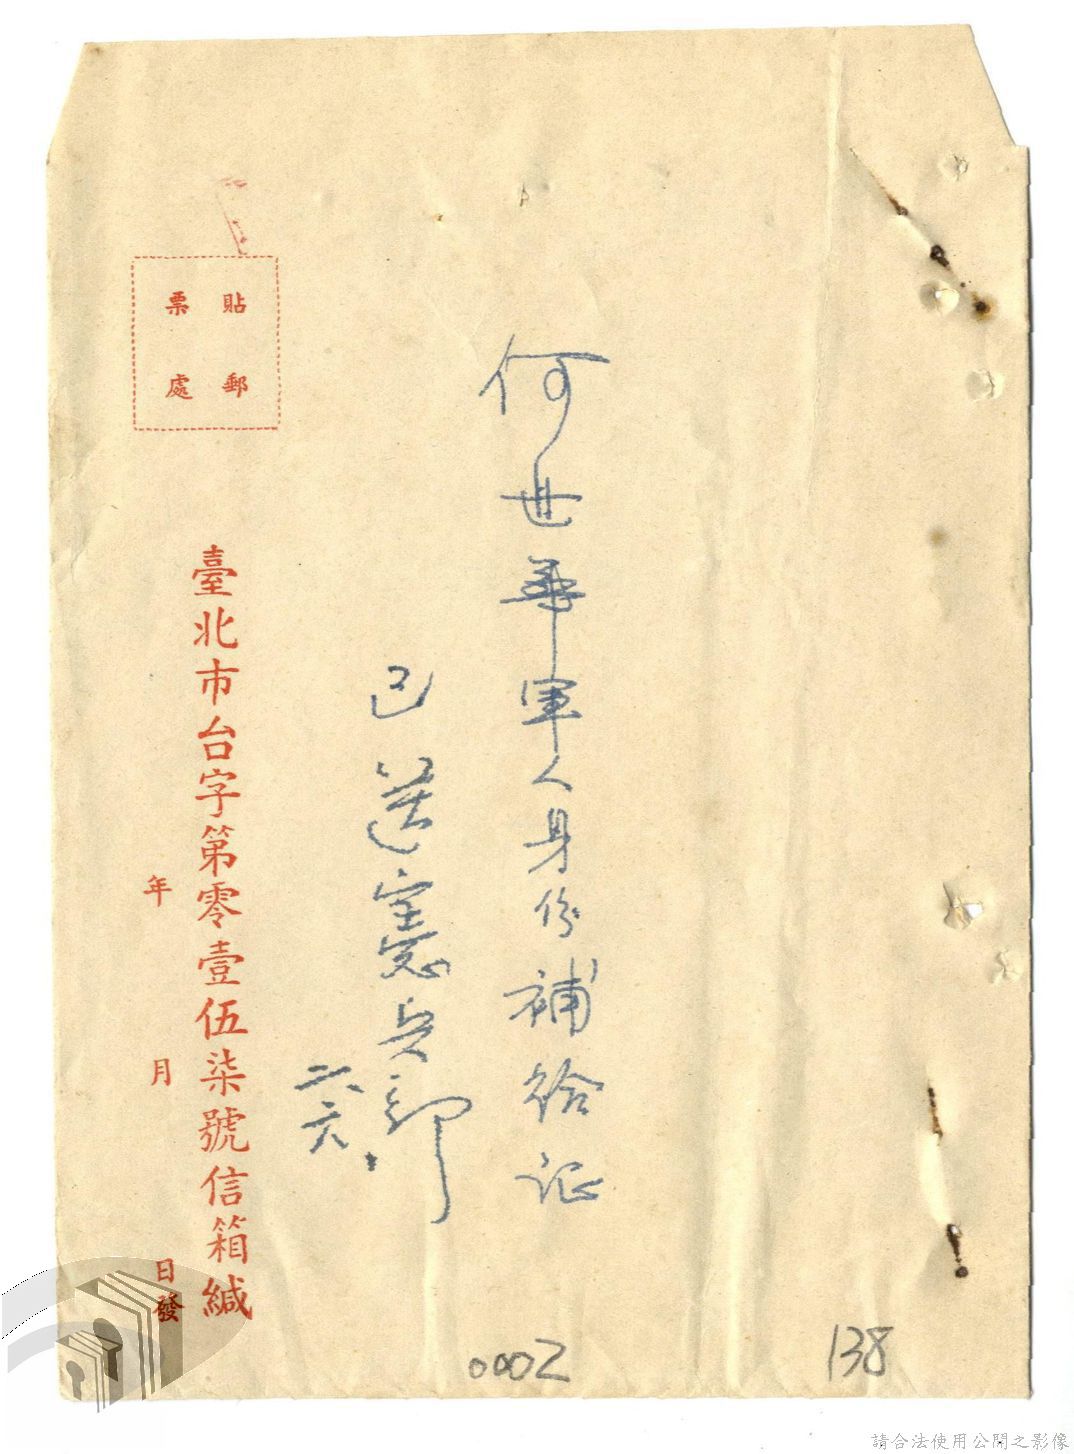 何世華軍人身份補給证
已送憲兵部
六、六、
臺北市台字第零壹伍柒號信箱緘
貼郵
票處
年 月 日發
0002
138
請合法使用公開之影像